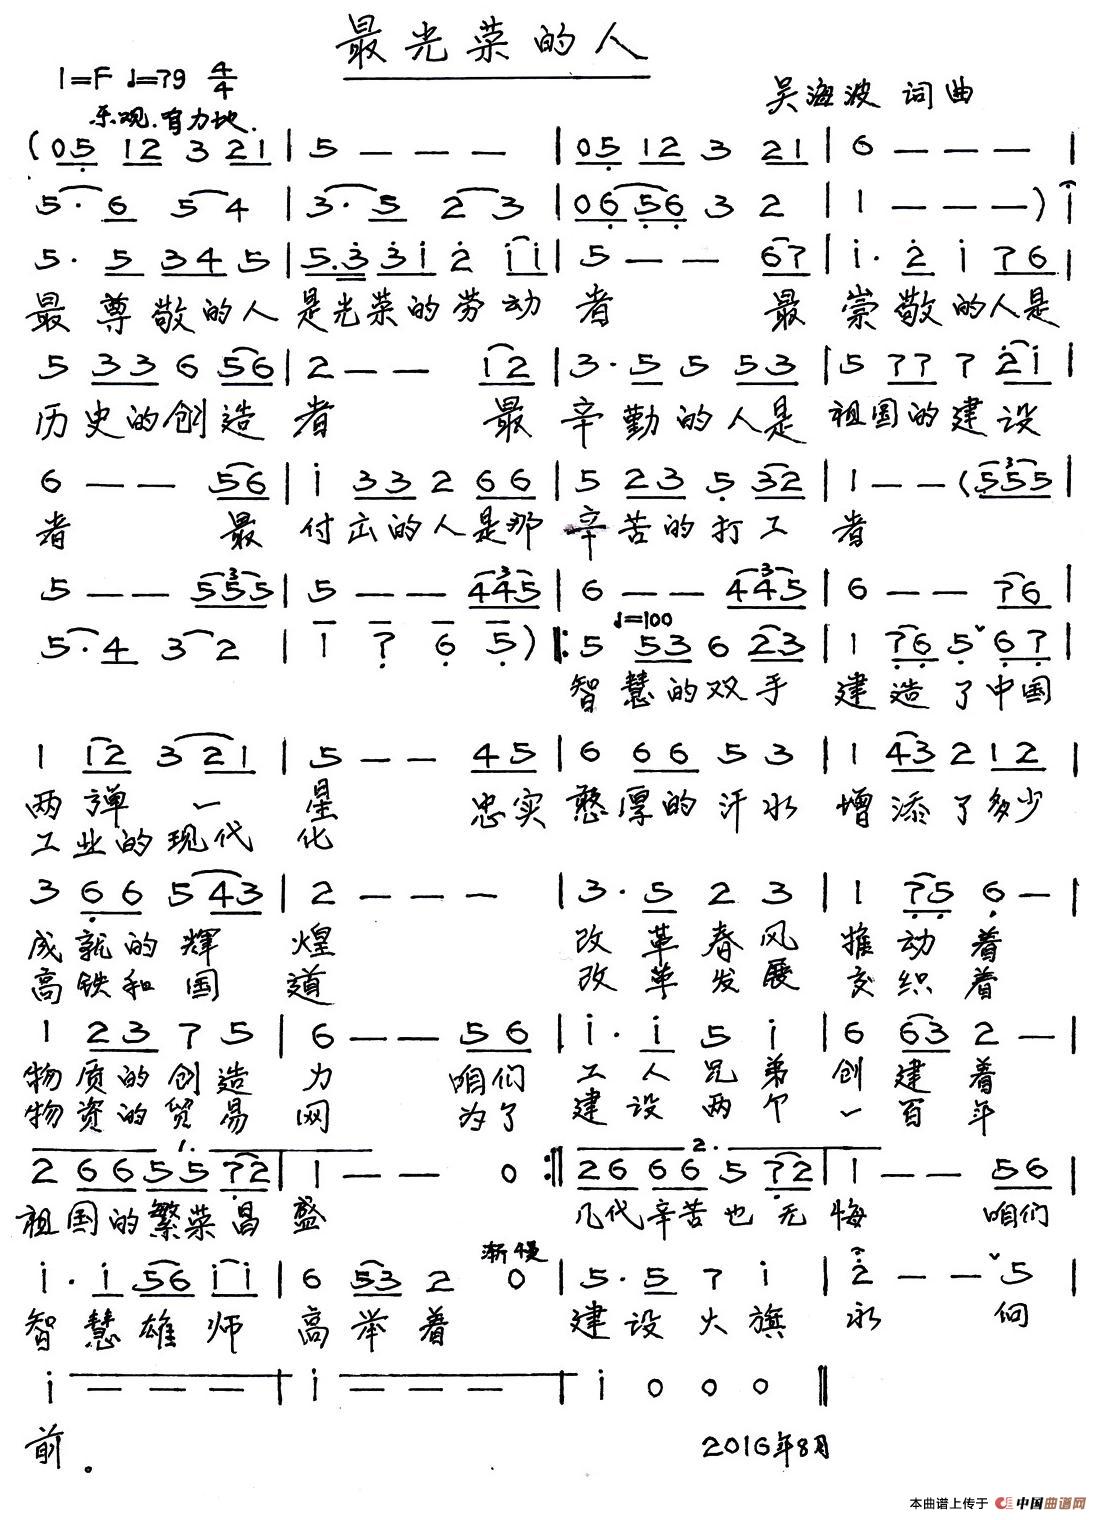 最光荣的人
1=F ♩=79 4/4
吴海波 词曲
乐观.有力地.
(05 12 3 21 | 5 — — — | 05 12 3 21 | 6 — — — |
5· 6 5 4 | 3· 5 2 3 | 06 56 3 2 | 1 — — —) i
5· 5 34 5 | 5.3 31 2 11 | 5 — — 67 | i· 2 i 76 |
最尊敬的人 是光荣的劳动 者 最 崇敬的人是
5 33 6 56 | 2 — — 12 | 3· 5 5 53 | 5 77 7 2i |
历史的创造 者 最 辛勤的人是 祖国的建设
6 — — 56 | i 33 2 66 | 5 23 5 32 | 1 — — (555 |
者 最 付出的人是那 辛苦的打工 者
5 — — 555 | 5 — — 445 | 6 — — 445 | 6 — — 76 |
♩=100
5· 4 3 2 | 1 7 6 5) ‖: 5 53 6 23 | 1 76 5 ˇ 67 |
智慧的双手 建造了中国
1 12 3 21 | 5 — — 45 | 6 66 5 3 | 1 43 2 12 |
两弹一 星 忠实 憨厚的汗水 增添了多少
工业的现代 化
3 66 5 43 | 2 — — — | 3· 5 2 3 | 1 75 6 — |
成就的辉 煌 改革春风 推动着
高铁和国 道 改革发展 交织着
1 23 7 5 | 6 — — 56 | i· i 5 i | 6 63 2 — |
物质的创造 力 咱们 工人兄弟 创建着
物资的贸易 网 为了 建设两个 一百年
1. 2.
2 66 55 72 | 1 — — 0 :‖ 26 66 5 72 | 1 — — 56 |
祖国的繁荣昌 盛 几代辛苦也无 悔 咱们
渐慢
i· i 56 ii | 6 53 2 0 | 5· 5 7 i | 2 — — ˇ 5 |
智慧雄师 高举着 建设大旗 永 向
i — — — | i — — — | i 0 0 0 ‖
前。
2016年8月
本曲谱上传于 中国曲谱网